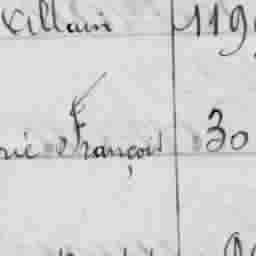 Villain 119
rié François 30